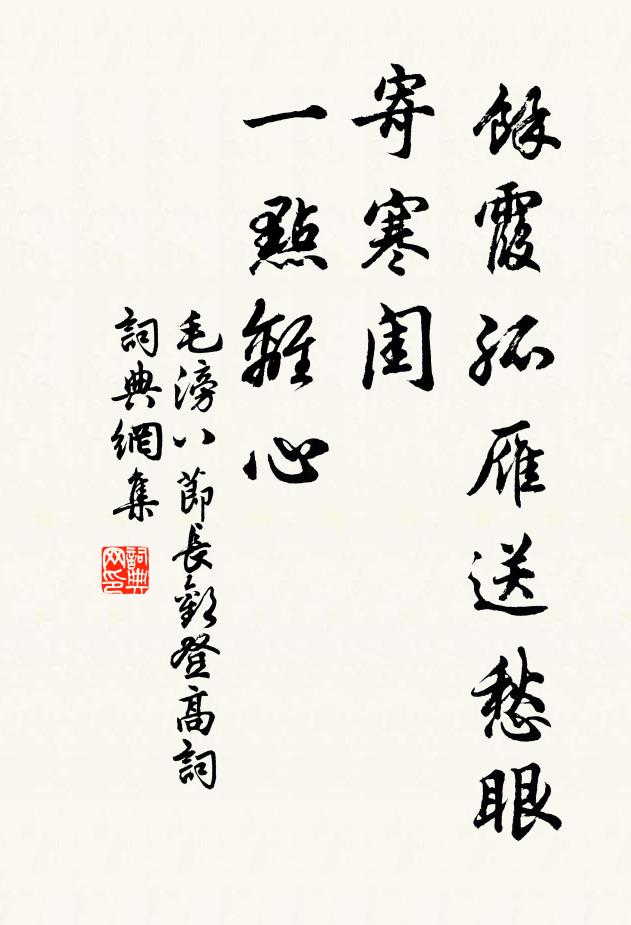 餘霞孤雁送愁眼
寄寒閨
一點離心
毛滂八節長歡登高詞
詞典網集
詞典网印